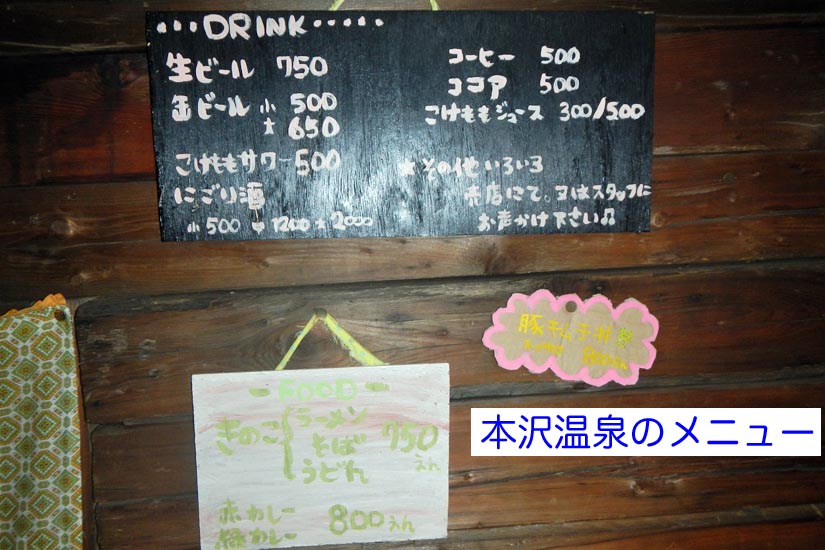 ・・・DRINK・・・・・
生ビール 750
缶ビール 小 500
大 650
こけももサワー 500
にごり酒
小 500 中 1200 大 2000
コーヒー 500
ココア 500
こけももジュース 300/500
★その他いろいろ
売店にて。又はスタッフに
お声かけ下さい♫
豚キムチ丼
800えん
- FOOD -
きのこ ラーメン
そば
うどん
750えん
赤カレー
緑カレー
800えん
本沢温泉のメニュー